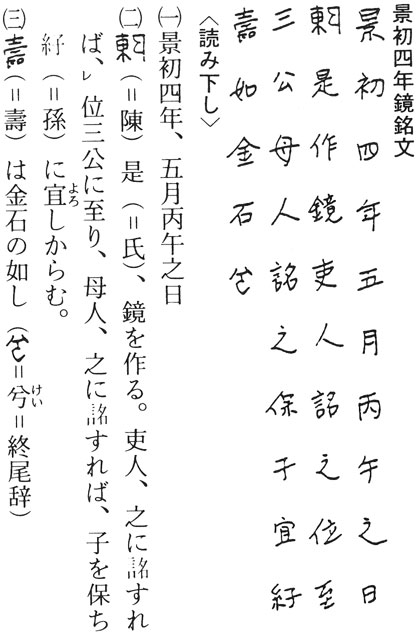 景初四年鏡銘文
景初四年五月丙午之日
陳是作鏡吏人詺之位至
三公母人詺之保子宜孫
壽如金石兮
〈読み下し〉
㈠景初四年、五月丙午之日
㈡陳（＝陳）是（＝氏）、鏡を作る。吏人、之に詺すれ
ば、位三公に至り、母人、之に詺すれば、子を保ち
孫（＝孫）に宜しからむ。
よろ
㈢壽（＝壽）は金石の如し（兮＝兮＝終尾辞）
けい